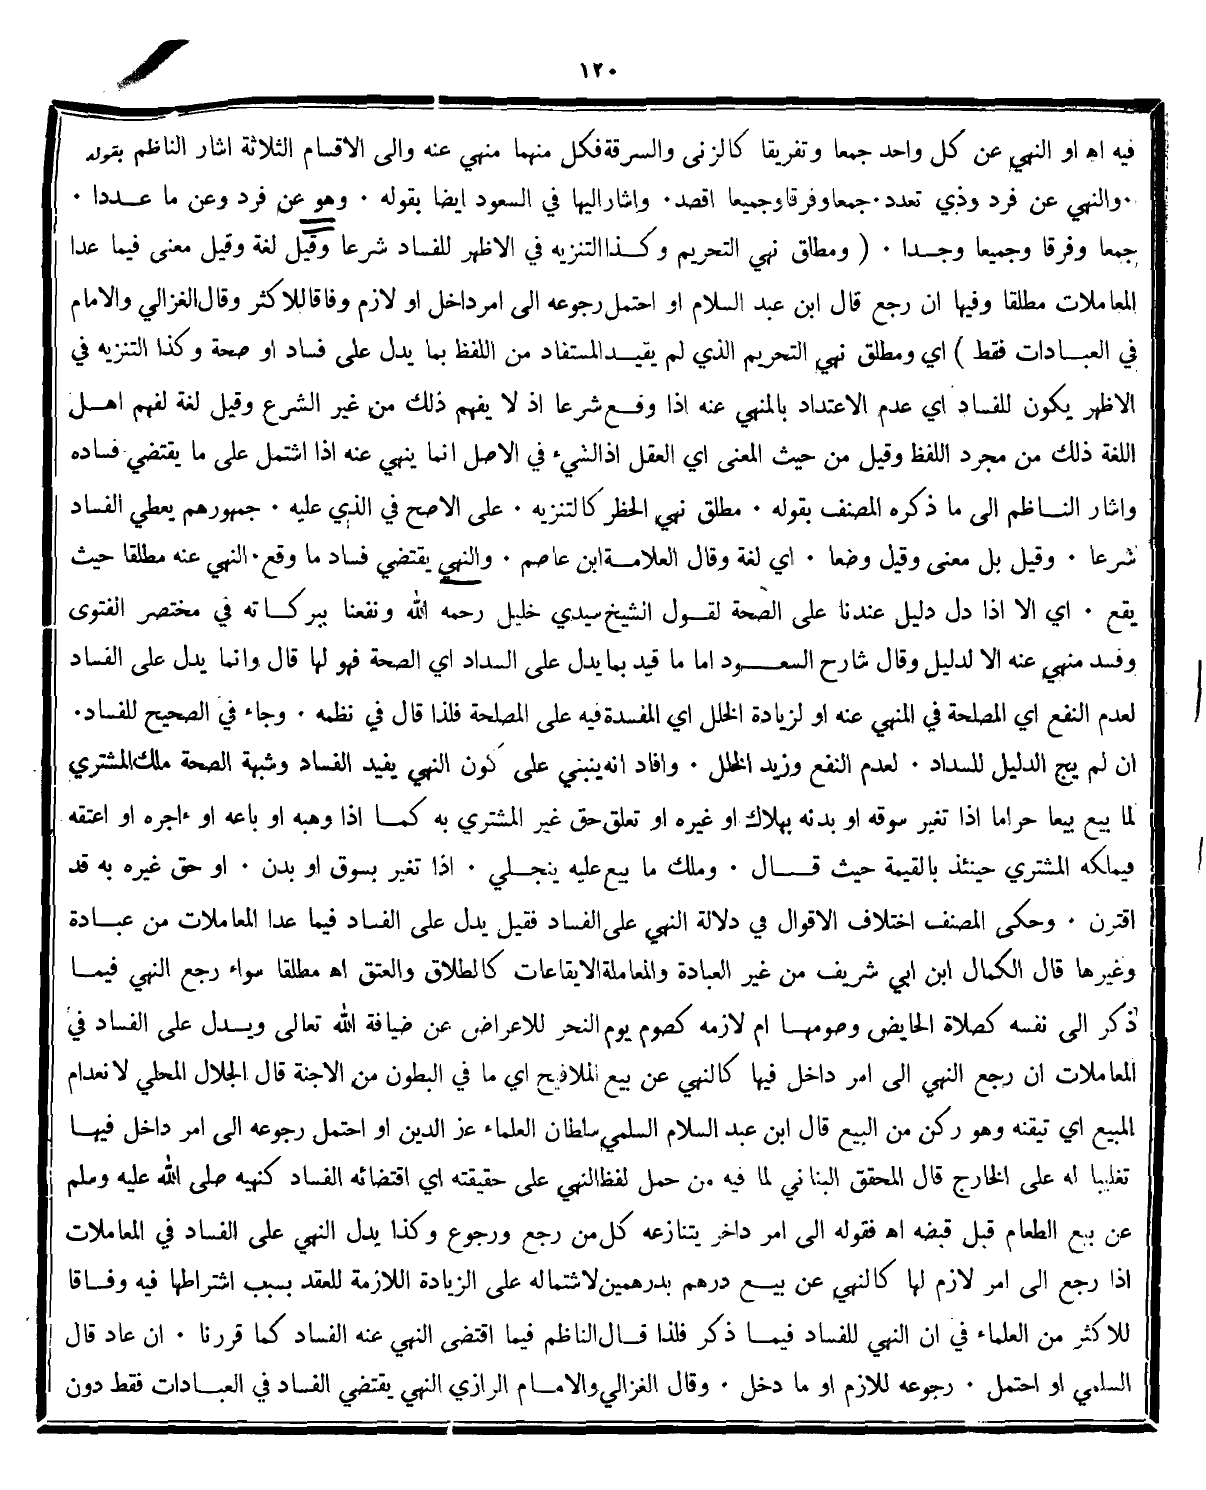 ١٢٠
فيه اه او النهي عن كل واحد جمعا وتفريقا كالزنى والسرقة فكل منهما منهي عنه والى الاقسام الثلاثة اشار الناظم بقوله
٠ والنهي عن فرد وذي تعدد ٠ جمعا وفرقا وجميعا اقصد ٠ واشار اليها في السعود ايضا بقوله ٠ وهو عن فرد وعن ما عددا ٠
جمعا وفرقا وجميعا وجدا ٠ ( ومطلق نهي التحريم وكذا التنزيه في الاظهر للفساد شرعا وقيل لغة وقيل معنى فيما عدا
المعاملات مطلقا وفيها ان رجع قال ابن عبد السلام او احتمل رجوعه الى امر داخل او لازم وفاقا للاكثر وقال الغزالي والامام
في العبادات فقط ) اي ومطلق نهي التحريم الذي لم يقيد المستفاد من اللفظ بما يدل على فساد او صحة وكذا التنزيه في
الاظهر يكون للفساد اي عدم الاعتداد بالمنهي عنه اذا وقع شرعا اذ لا يفهم ذلك من غير الشرع وقيل لغة لفهم اهل
اللغة ذلك من مجرد اللفظ وقيل من حيث المعنى اي العقل اذ الشيء في الاصل انما ينهى عنه اذا اشتمل على ما يقتضي فساده
واشار الناظم الى ما ذكره المصنف بقوله ٠ مطلق نهي الحظر كالتنزيه ٠ على الاصح في الذي عليه ٠ جمهورهم يعطي الفساد
شرعا ٠ وقيل بل معنى وقيل وضعا ٠ اي لغة وقال العلامة ابن عاصم ٠ والنهي يقتضي فساد ما وقع ٠ النهي عنه مطلقا حيث
يقع ٠ اي الا اذا دل دليل عندنا على الصحة لقول الشيخ سيدي خليل رحمه الله ونفعنا ببركاته في مختصر الفتوى
وفسد منهي عنه الا لدليل وقال شارح السعود اما ما قيد بما يدل على السداد اي الصحة فهو لها قال وانما يدل على الفساد
لعدم النفع اي المصلحة في المنهي عنه او لزيادة الخلل اي المفسدة فيه على المصلحة فلذا قال في نظمه ٠ وجاء في الصحيح للفساد ٠
ان لم يج الدليل للسداد ٠ لعدم النفع وزيد الخلل ٠ وافاد انه ينبني على كون النهي يفيد الفساد وشبهة الصحة ملك المشتري
لما بيع بيعا حراما اذا تغير سوقه او بدنه بهلاك او غيره او تعلق حق غير المشتري به كما اذا وهبه او باعه او ءاجره او اعتقه
فيملكه المشتري حينئذ بالقيمة حيث قال ٠ وملك ما بيع عليه ينجلي ٠ اذا تغير بسوق او بدن ٠ او حق غيره به قد
اقترن ٠ وحكى المصنف اختلاف الاقوال في دلالة النهي على الفساد فقيل يدل على الفساد فيما عدا المعاملات من عبادة
وغيرها قال الكمال ابن ابي شريف من غير العبادة والمعاملة الايقاعات كالطلاق والعتق اه مطلقا سواء رجع النهي فيما
ذكر الى نفسه كصلاة الحايض وصومها ام لازمه كصوم يوم النحر للاعراض عن ضيافة الله تعالى ويدل على الفساد في
المعاملات ان رجع النهي الى امر داخل فيها كالنهي عن بيع الملاقيح اي ما في البطون من الاجنة قال الجلال المحلي لانعدام
المبيع اي تيقنه وهو ركن من البيع قال ابن عبد السلام السلمي سلطان العلماء عز الدين او احتمل رجوعه الى امر داخل فيها
تغليبا له على الخارج قال المحقق البناني لما فيه من حمل لفظ النهي على حقيقته اي اقتضائه الفساد كنهيه صلى الله عليه وسلم
عن بيع الطعام قبل قبضه اه فقوله الى امر داخر يتنازعه كل من رجع ورجوع وكذا يدل النهي على الفساد في المعاملات
اذا رجع الى امر لازم لها كالنهي عن بيع درهم بدرهمين لاشتماله على الزيادة اللازمة للعقد بسبب اشتراطها فيه وفاقا
للاكثر من العلماء في ان النهي للفساد فيما ذكر فلذا قال الناظم فيما اقتضى النهي عنه الفساد كما قررنا ٠ ان عاد قال
السلمي او احتمل ٠ رجوعه للازم او ما دخل ٠ وقال الغزالي والامام الرازي النهي يقتضي الفساد في العبادات فقط دون